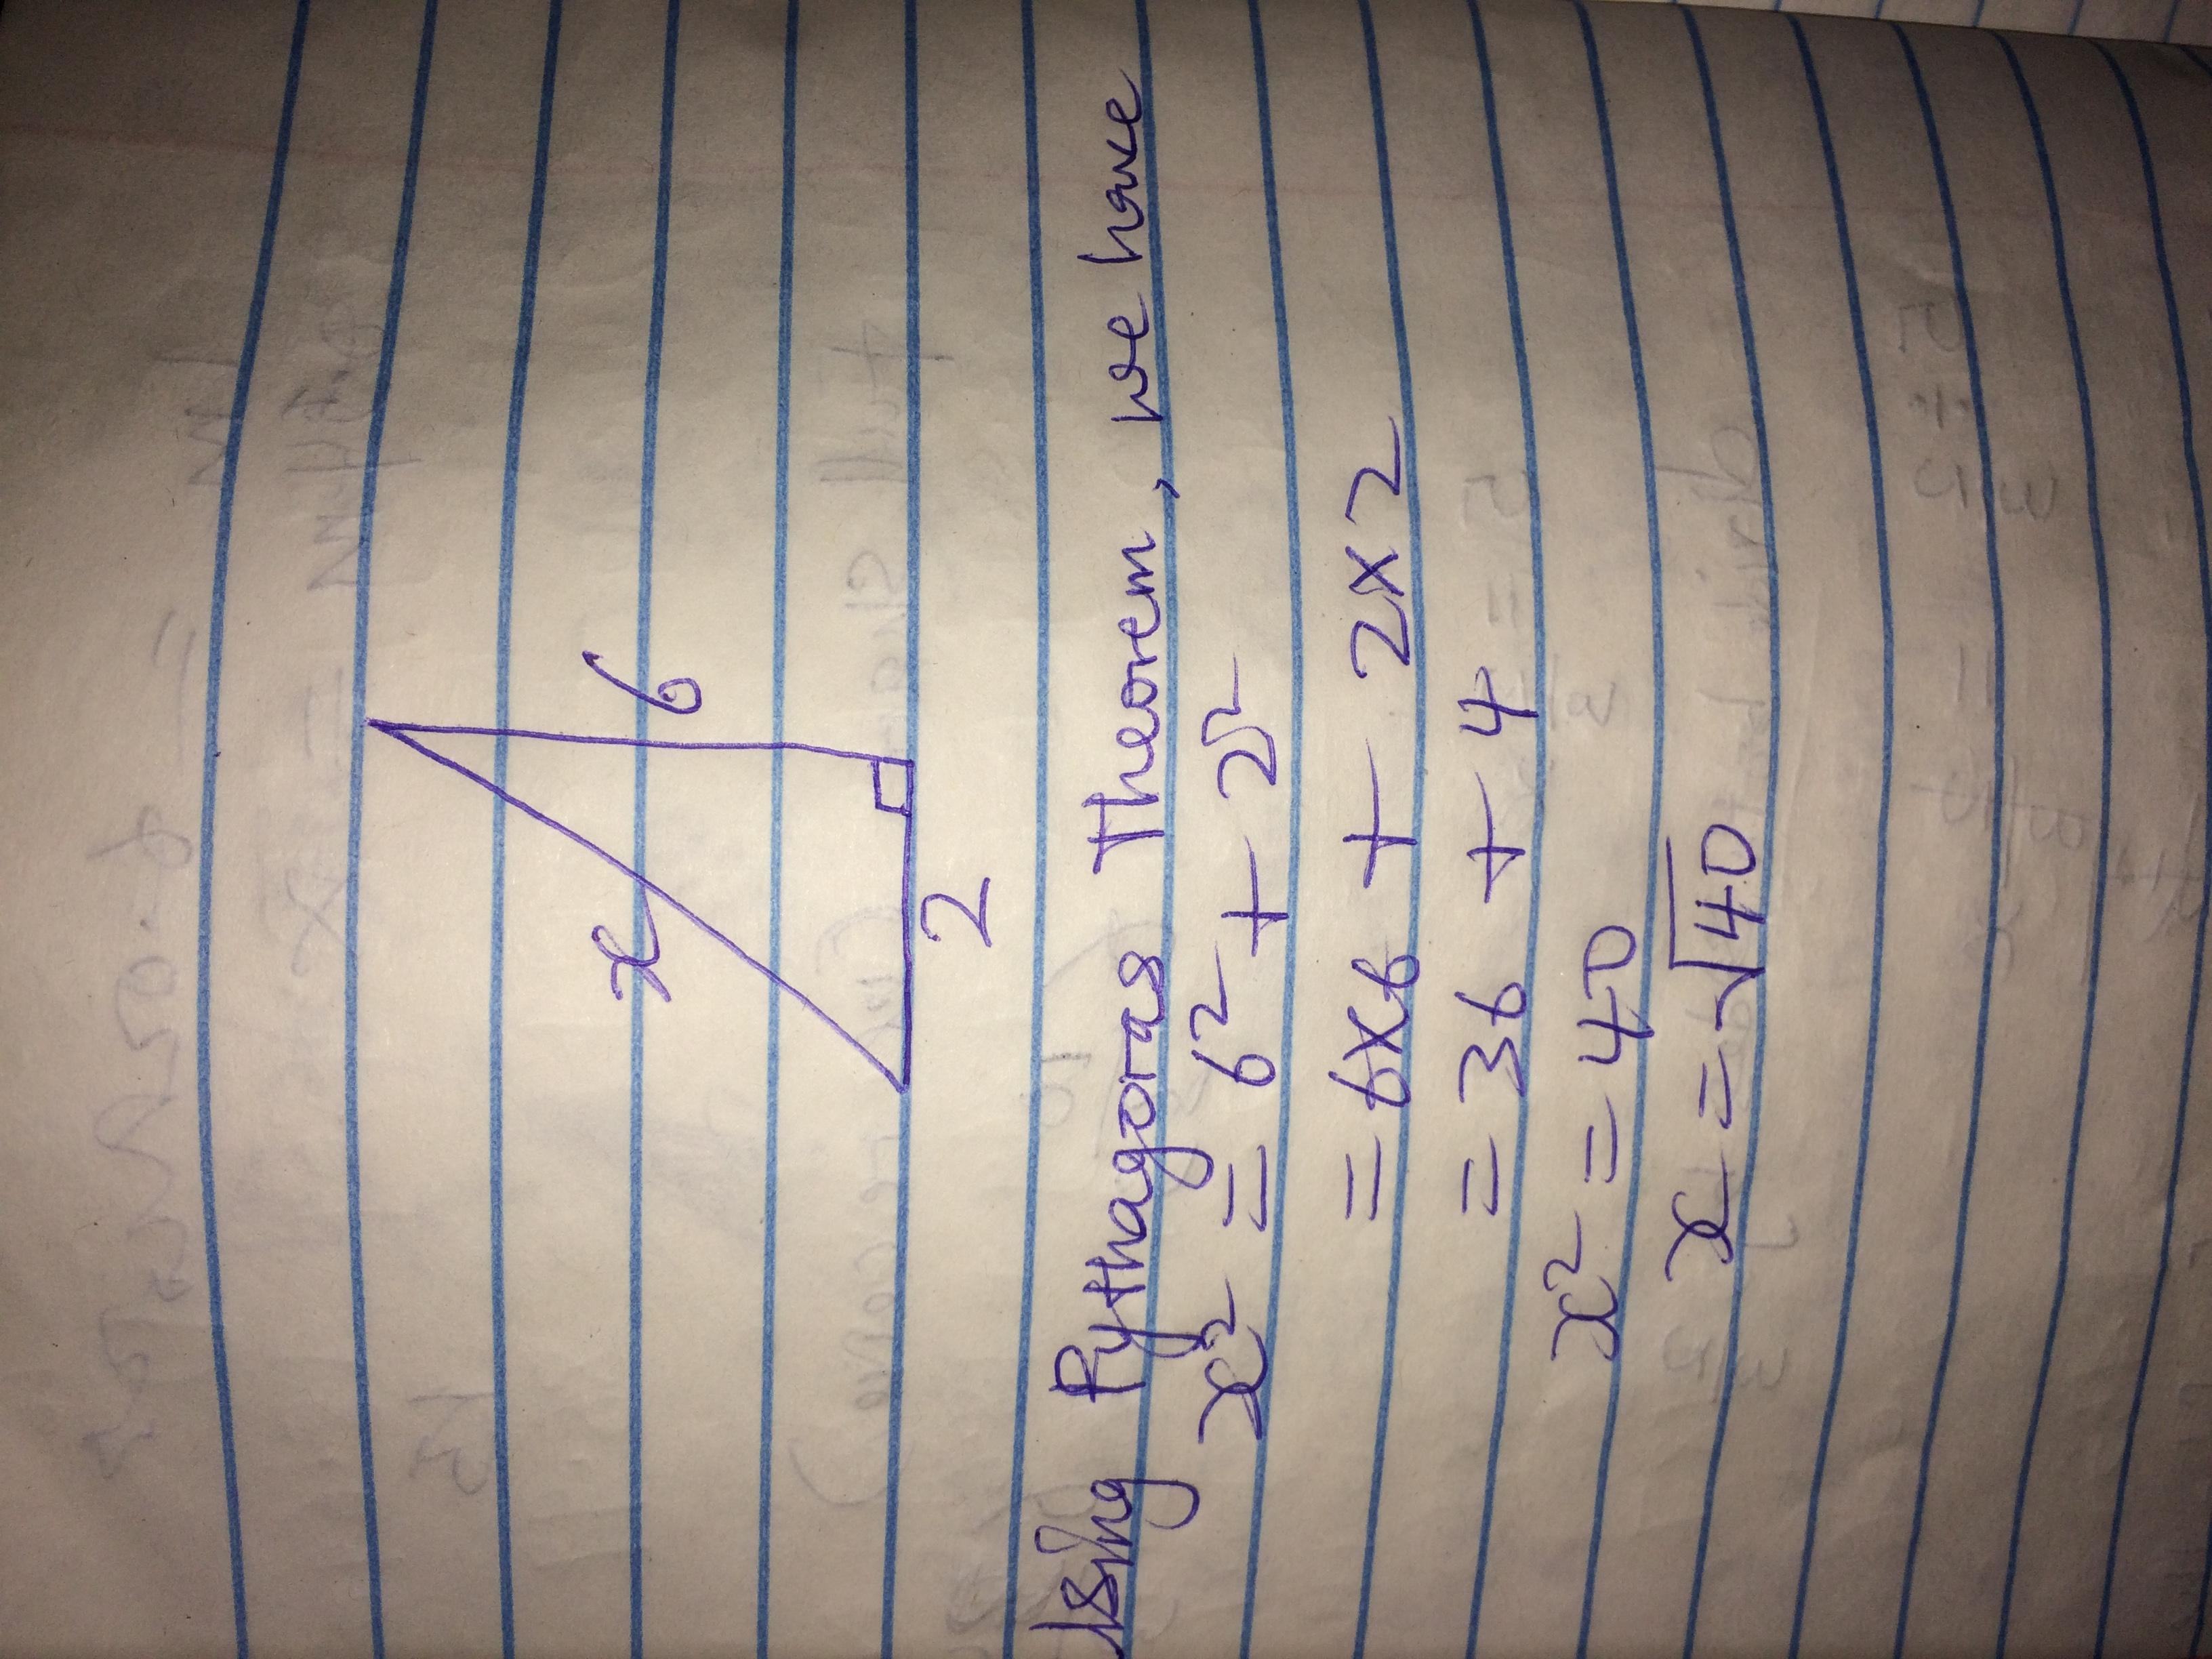 x
6
2
Using Pythagoras Theorem, we have
x² = 6² + 2²
= 6x6 + 2x2
= 36 + 4
x² = 40
x = √40